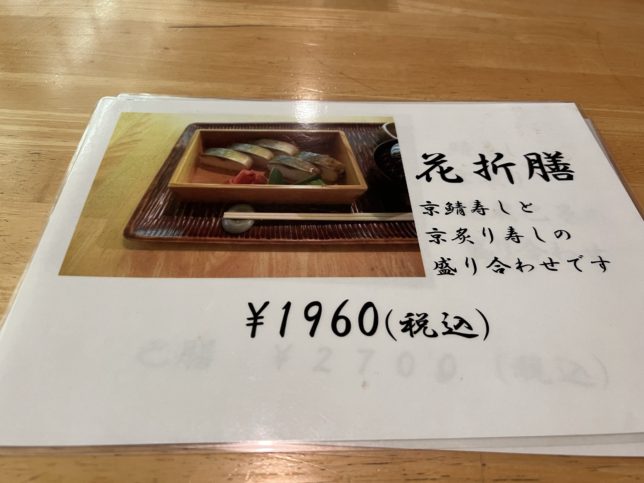 花折膳
京鯖寿しと
京炙り寿しの
盛り合わせです
¥1960(税込)
¥2700(税込)